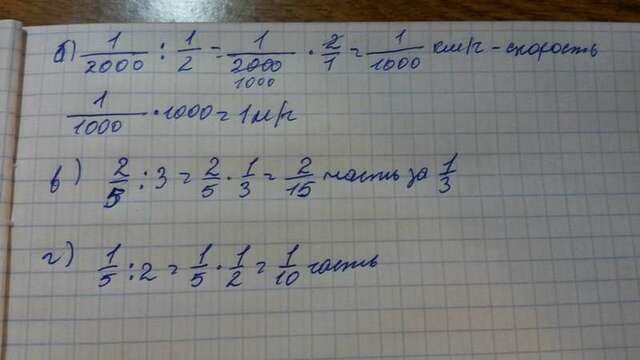 б) 1/2000 : 1/2 = 1/2000 1000 · 2/1 = 1/1000 км/ч - скорость
1/1000 · 1000 = 1 м/ч
в) 2/5 : 3 = 2/5 · 1/3 = 2/15 часть за 1/3
г) 1/5 : 2 = 1/5 · 1/2 = 1/10 часть